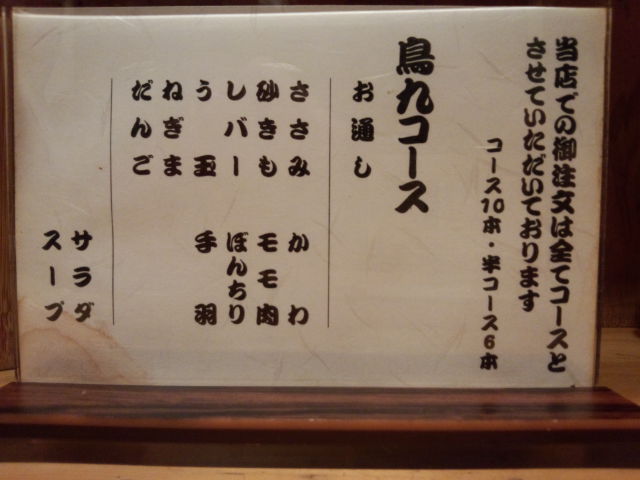 当店での御注文は全てコースと
させていただいております
コース10本・半コース6本
鳥九コース
お通し
ささみ
かわ
砂きも
モモ肉
レバー
ぼんちり
う玉
手羽
ねぎま
だんご
サラダ
スープ